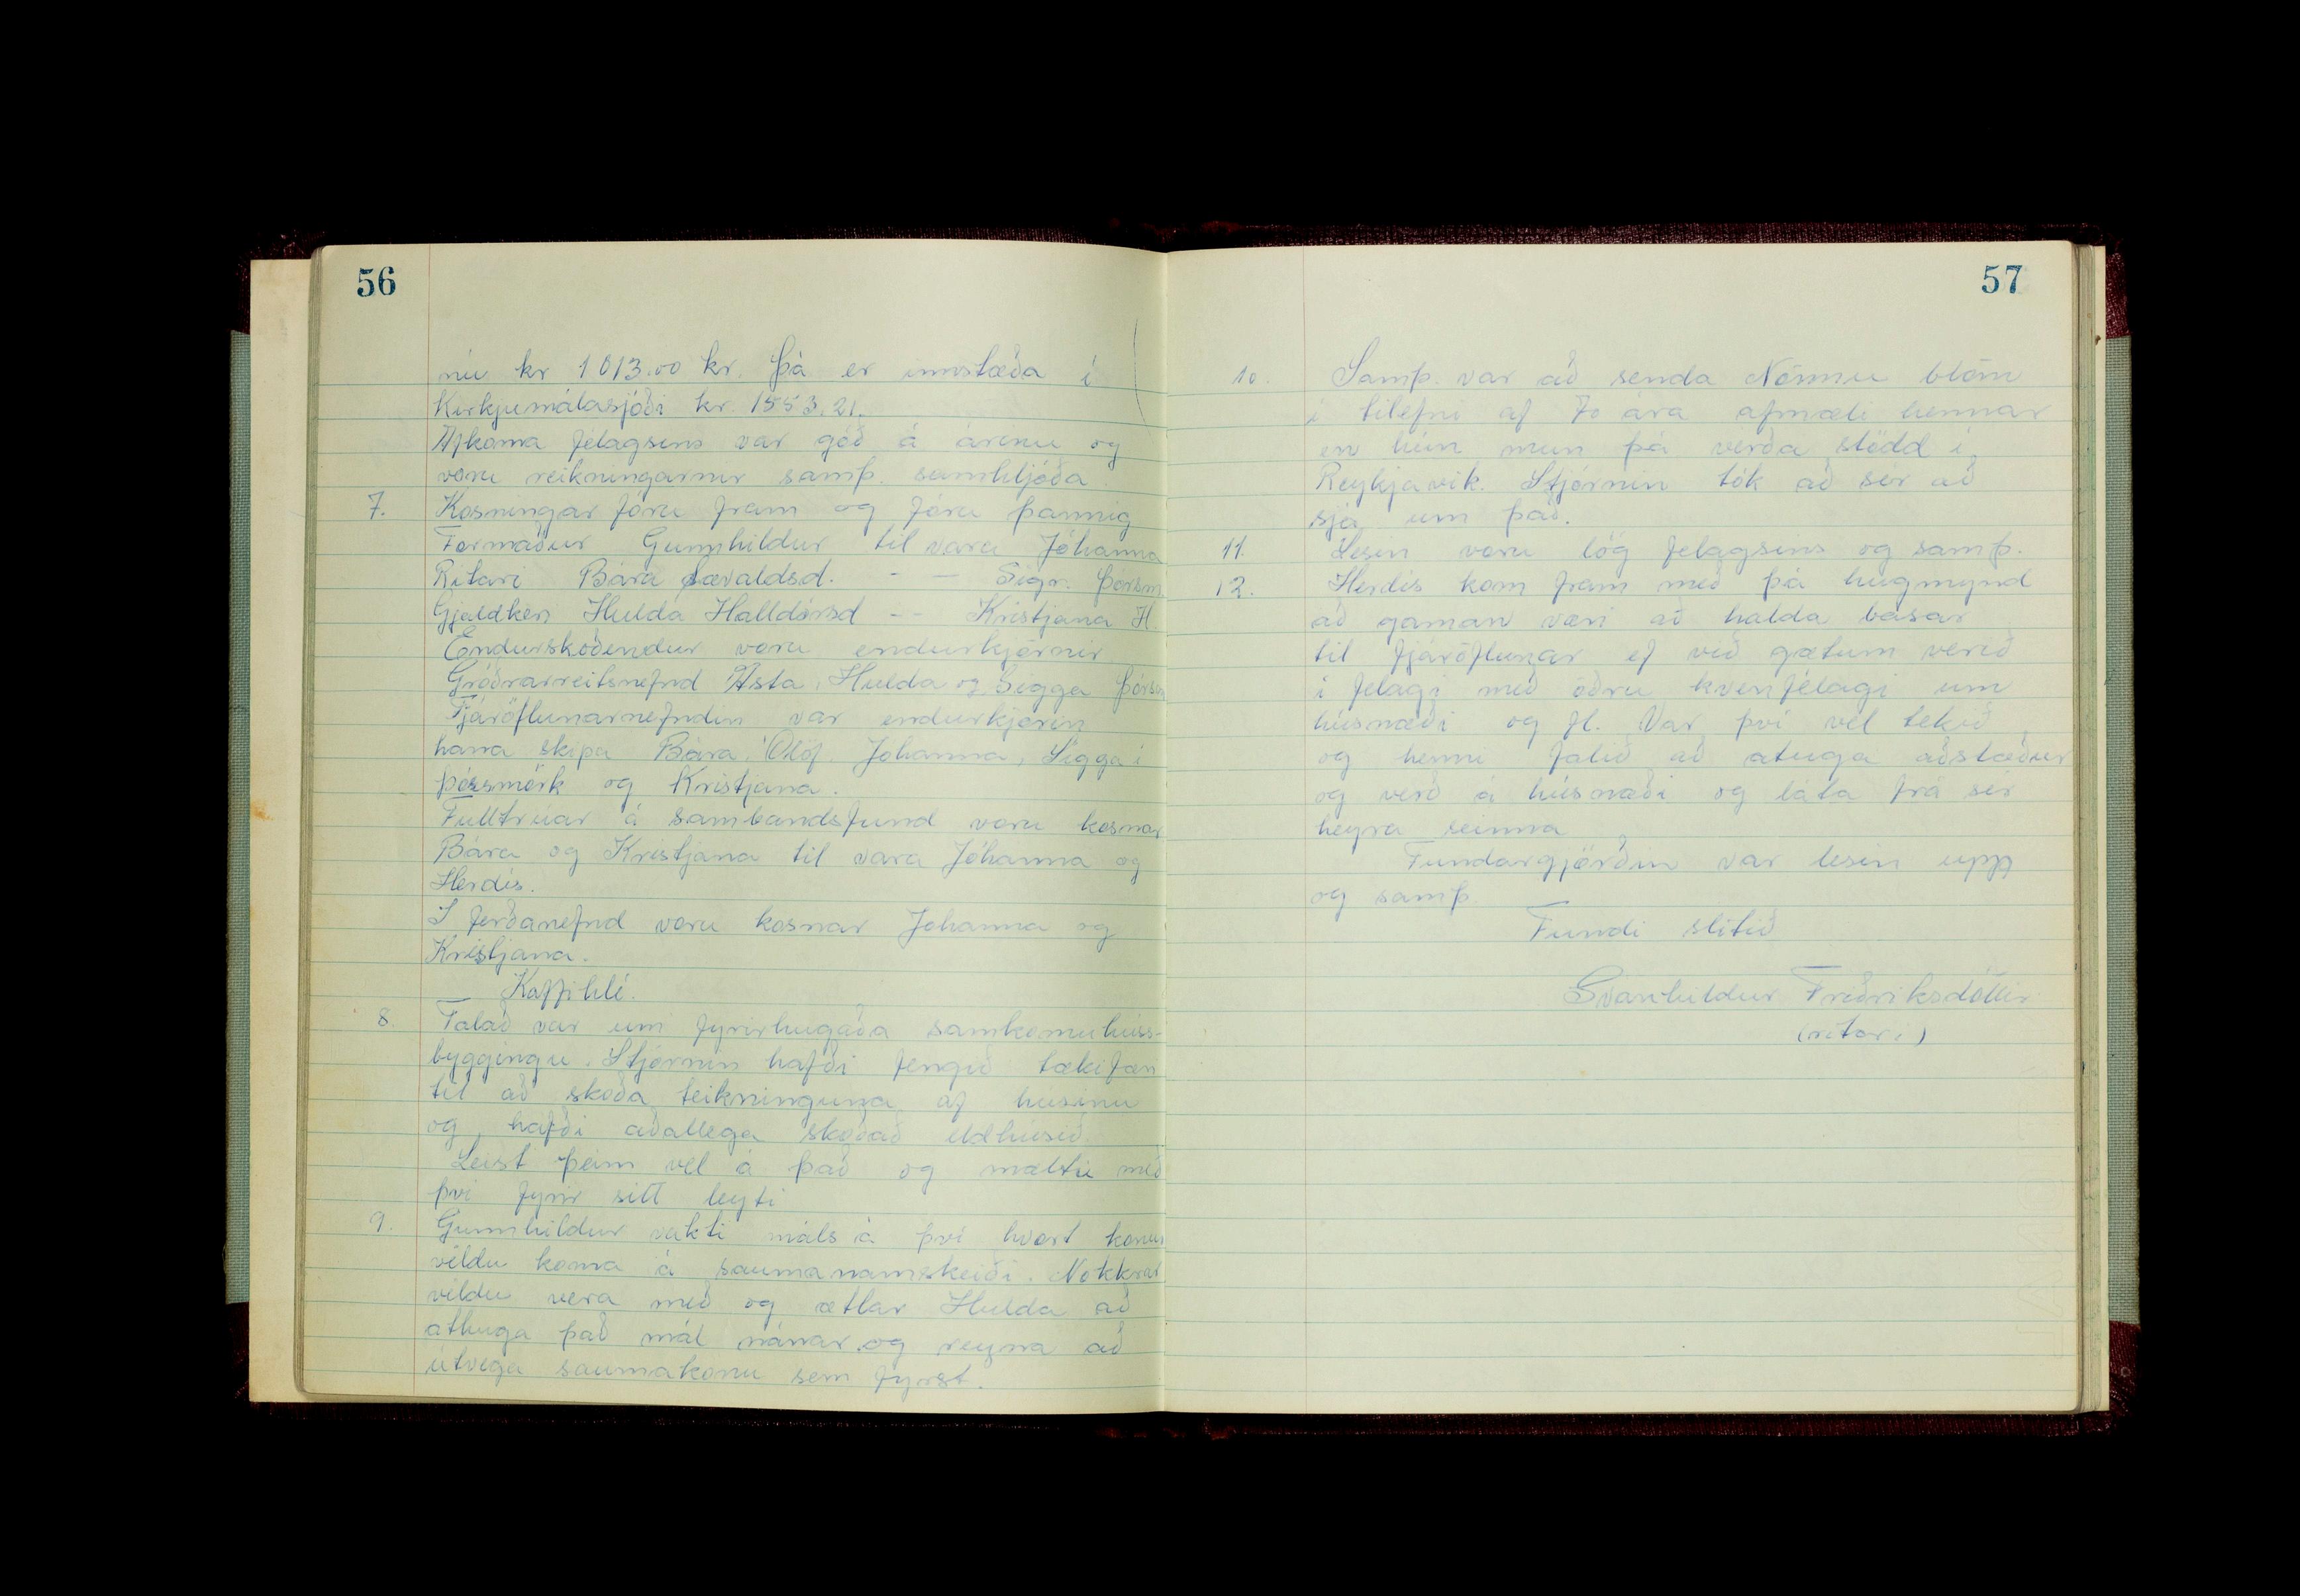 56
nú kr 1013.00 kr. Þá er innstæða í
Kirkjumálasjóði kr. 1553.21.
Afkoma félagsins var góð á árinu og
voru reikningarnir samþ. samhljóða
7. Kosningar fóru fram og fóru þannig
Formaður Gunnhildur til vara Jóhanna
Ritari Bára Sævaldsd. - — Sigr. Þórsm.
Gjaldkeri Hulda Halldórsd -- Kristjana H
Endurskoðendur voru endurkjörnir
Gróðrarreitsnefnd Ásta, Hulda og Sigga Þórsm
Fjáröflunarnefndin var endurkjörin
hana skipa Bára, Ólöf, Jóhanna, Sigga í
Þórsmörk og Kristjana.
Fulltrúar á sambandsfund voru kosnar
Bára og Kristjana til vara Jóhanna og
Herdís.
Í ferðanefnd voru kosnar Jóhanna og
Kristjana.
Kaffihlé.
8. Talað var um fyrirhugaða samkomuhúss-
byggingu. Stjórnin hafði fengið tækifæri
til að skoða teikninguna af húsinu
og hafði aðallega skoðað eldhúsið.
Leist þeim vel á það og mæltu með
því fyrir sitt leyti
9. Gunnhildur vakti máls á því hvort konur
vildu koma á saumanamskeiði. Nokkrar
vildu vera með og ætlar Hulda að
athuga það mál nánar og reyna að
útvega saumakonu sem fyrst.
57
10. Samþ. var að senda Nönnu blóm
í tilefni af 70 ára afmæli hennar
en hún mun þá verða stödd í
Reykjavík. Stjórnin tók að sér að
sjá um það.
11. Lesin voru lög félagsins og samþ.
12. Herdís kom fram með þá hugmynd
að gaman væri að halda basar
til fjáröflunar ef við gætum verið
í félagi með öðru kvenfélagi um
húsnæði og fl. Var því vel tekið
og henni falið að atuga aðstæður
og verð á húsnæði og láta frá sér
heyra seinna
Fundargjörðin var lesin upp
og samþ
Fundi slitið
Svanhildur Friðriksdóttir
(ritari)